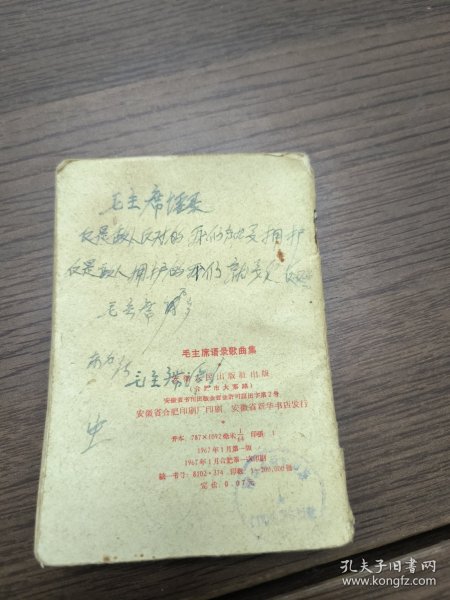 毛主席语录
凡是敌人反对的 我们就要拥护
凡是敌人拥护的 我们就要反
毛主席
毛主席语录歌曲集
毛主席
安徽人民出版社出版
(合肥市大寨路)
安徽省书刊出版业营业许可证出字第2号
安徽省合肥印刷厂印刷 安徽省新华书店发行
开本:787×1092毫米1/64 印张:1
1967年1月第一版
1967年1月合肥第一次印刷
统一书号:8102·374 印数:1—200,000册
定价:0.07元
孔夫子旧书网
www.kongfz.com